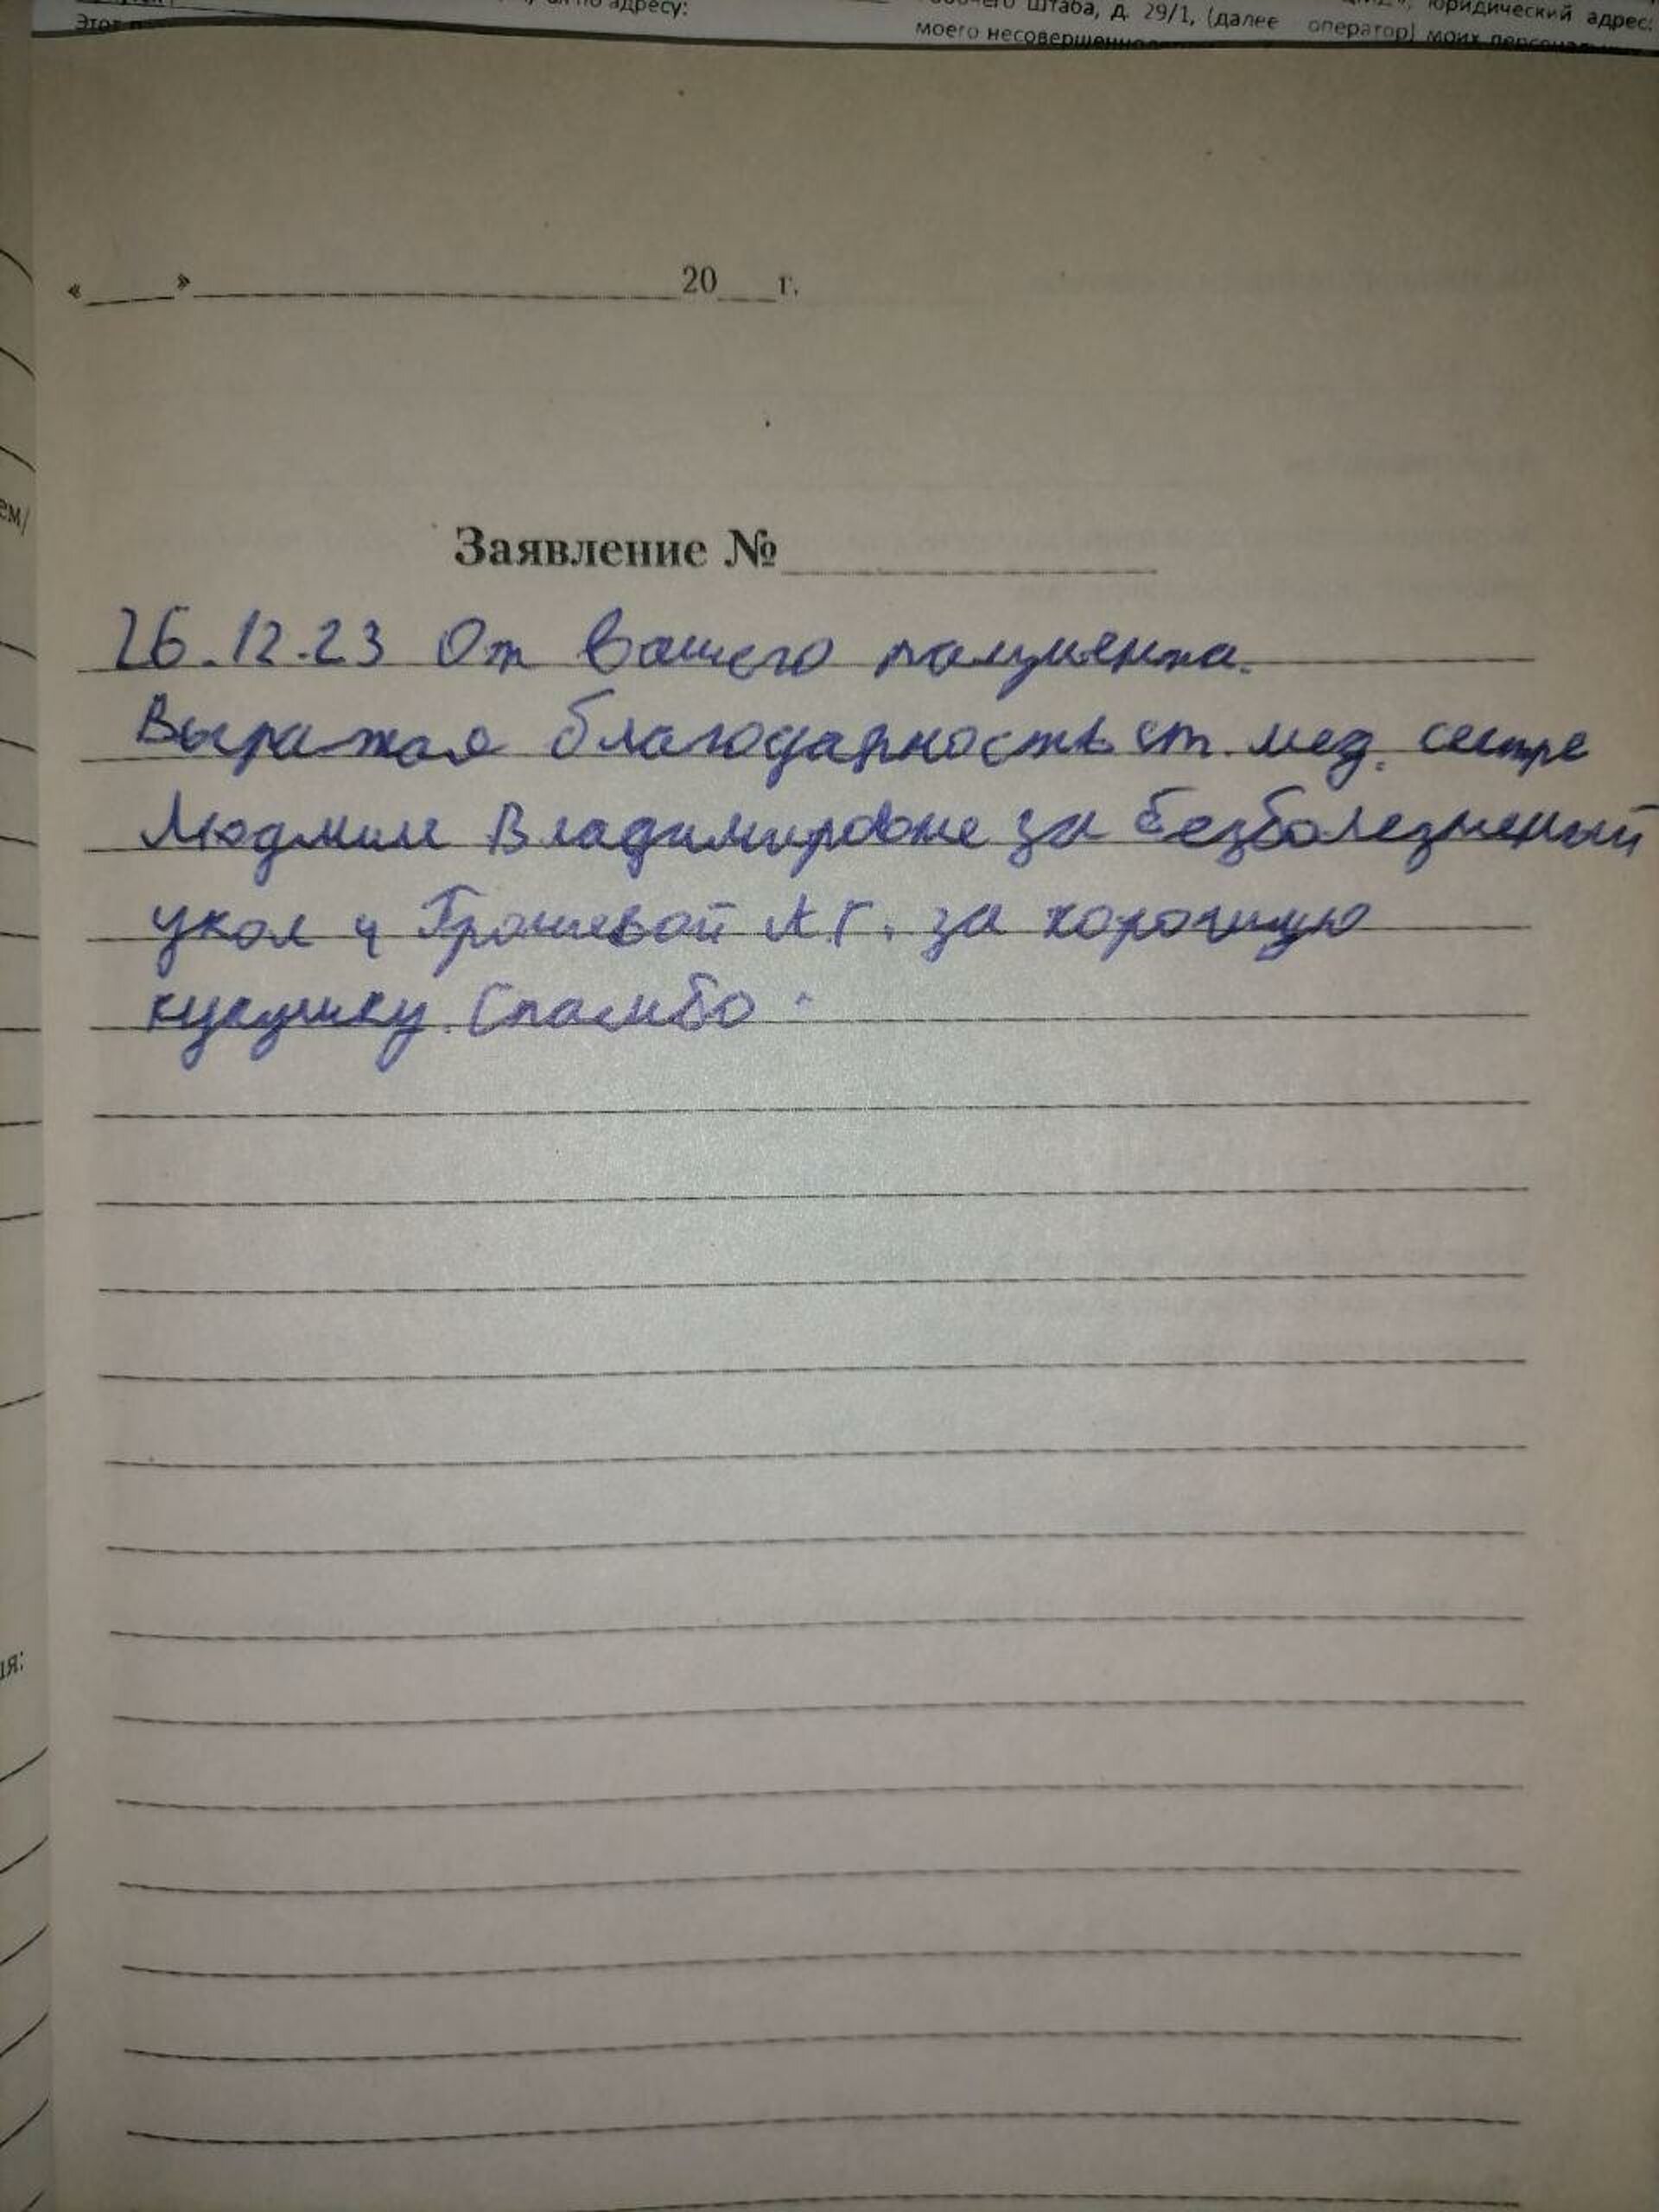 адресу:
Штаба, д. 29/1, (далее оператор) моих
юридический адрес:
моего
« » 20 г.
Заявление №
26.12.23 От вашего пациента.
Выражаю благодарность ст. мед. сестре
Людмиле Владимировне за безболезненный
укол и Грошевой А.Г. за хорошую
кукушку. Спасибо